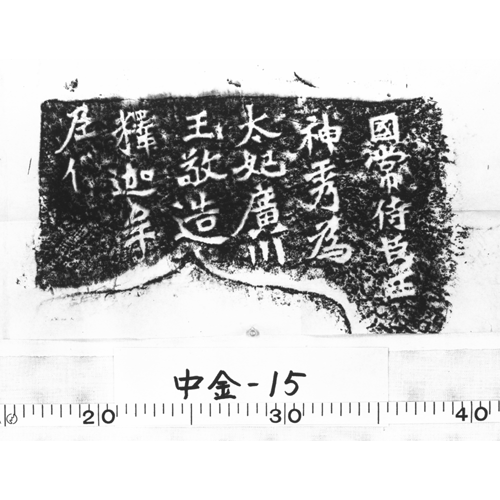 國常侍臣王
神秀為
太妃廣川
王敬造
釋迦牟
尼
中金-15
20 30 40